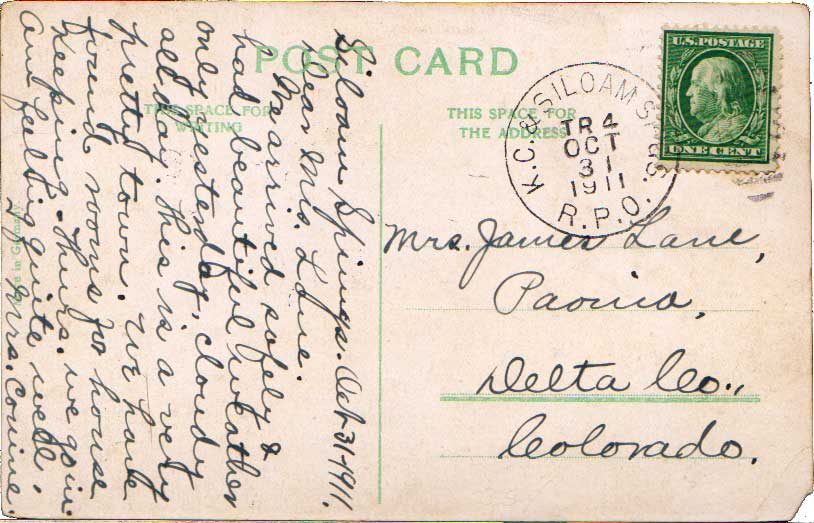 POST CARD
THIS SPACE FOR
WRITING
THIS SPACE FOR
THE ADDRESS
Siloam Springs. Oct-31-1911.
Dear Mrs. Lane.
We arrived safely &
had beautiful weather
only yesterday, cloudy
all day. This is a very
pretty town. We have
found rooms for house
keeping. Thurs. we go in.
Am feeling quite well.
Mrs. Conine.
Made in Germany.
K.C. & SILOAM SPGS.
TR 4
OCT
31
1911
R.P.O.
U.S. POSTAGE
ONE CENT
Mrs. James Lane,
Paonia,
Delta Co.,
Colorado.